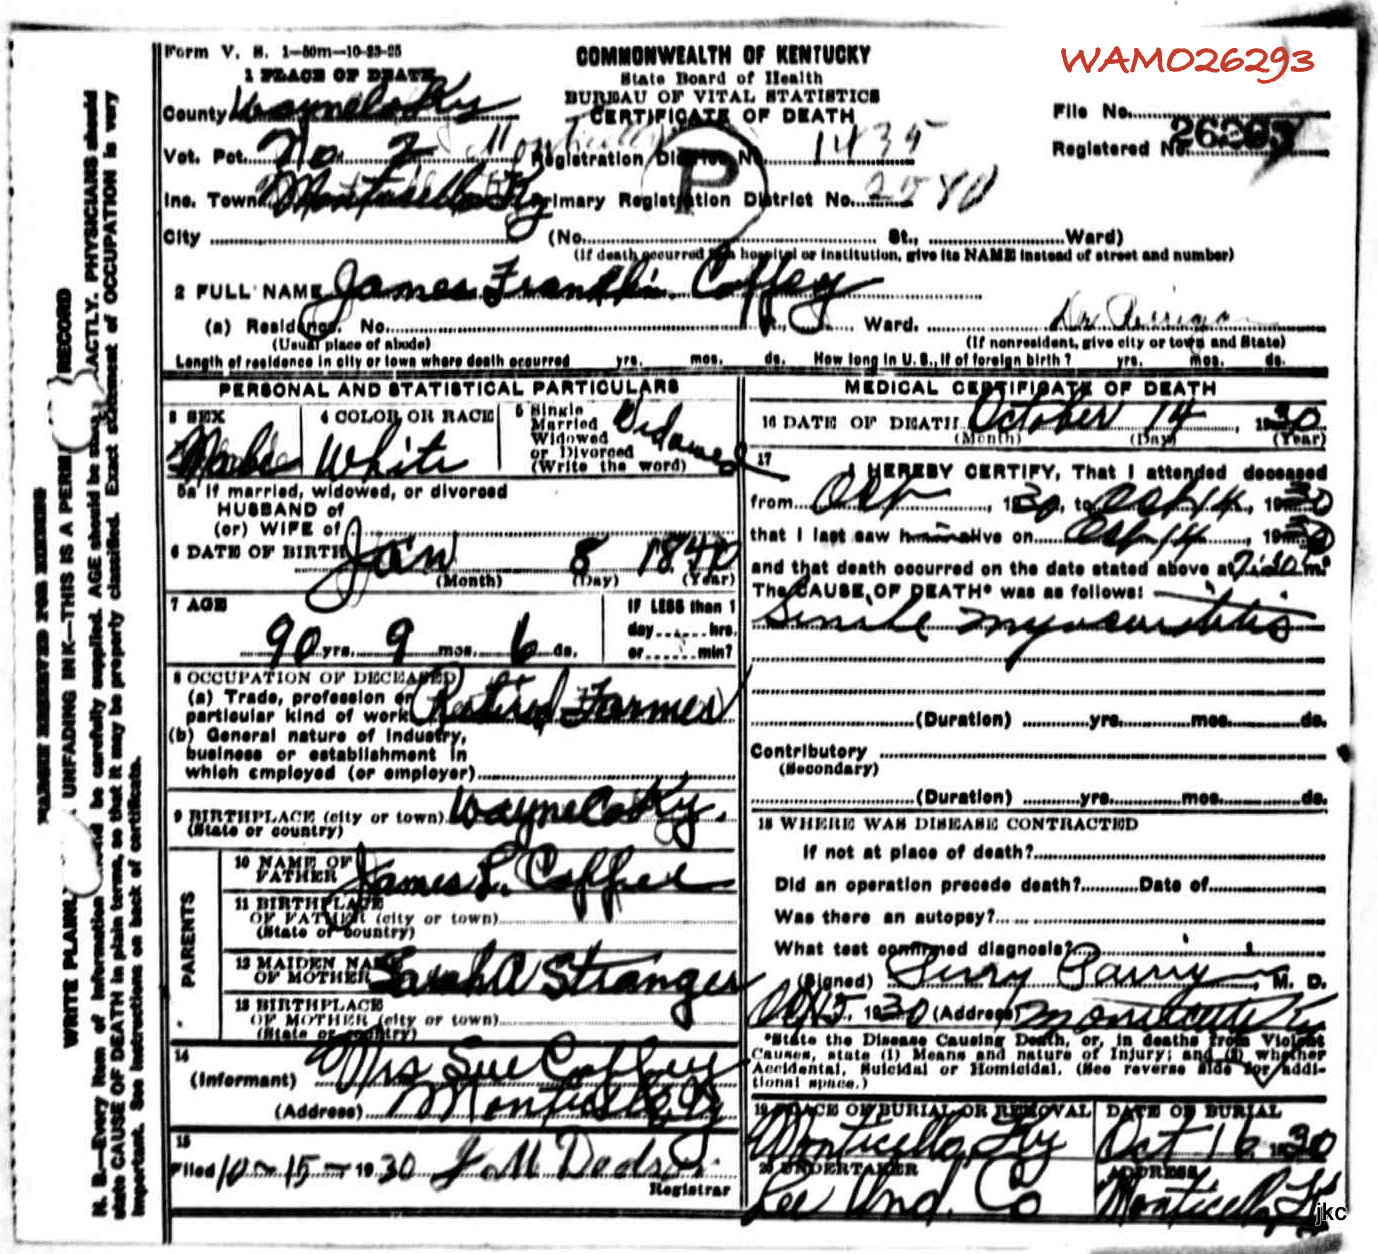 Form V. S. 1—50m—10-23-25
COMMONWEALTH OF KENTUCKY
State Board of Health
BUREAU OF VITAL STATISTICS
CERTIFICATE OF DEATH
WAM026293
1 PLACE OF DEATH
County Wayne Co Ky
File No.
Vot. Pct. No. 2 Registration District No. 1435
Registered No. 26293
P
Inc. Town Monticello Ky Primary Registration District No. 2580
City (No. St., Ward)
(If death occurred in a hospital or institution, give its NAME instead of street and number)
2 FULL NAME James Franklin Coffey
(a) Residence. No. St., Ward.
(Usual place of abode) (If nonresident, give city or town and State)
Length of residence in city or town where death occurred yrs. mos. ds. How long in U. S., if of foreign birth? yrs. mos. ds.
PERSONAL AND STATISTICAL PARTICULARS
3 SEX Male
4 COLOR OR RACE White
5 Single
Married
Widowed
or Divorced
(Write the word)
Widowed
5a If married, widowed, or divorced
HUSBAND of
(or) WIFE of
6 DATE OF BIRTH Jan 8 1840
(Month) (Day) (Year)
7 AGE
90 yrs. 9 mos. 6 ds.
IF LESS than 1
day hrs.
or min?
8 OCCUPATION OF DECEASED
(a) Trade, profession or
particular kind of work Retired Farmer
(b) General nature of industry,
business or establishment in
which employed (or employer)
9 BIRTHPLACE (city or town) Wayne Co Ky.
(State or country)
PARENTS
10 NAME OF
FATHER James L. Coffee
11 BIRTHPLACE
OF FATHER (city or town)
(State or country)
12 MAIDEN NAME
OF MOTHER Sarah A Stranger
13 BIRTHPLACE
OF MOTHER (city or town)
(State or country)
14
(Informant) Mrs Sue Coffey
(Address) Monticello Ky
15
Filed 10-15-1930 J. M. Dodson
Registrar
MEDICAL CERTIFICATE OF DEATH
16 DATE OF DEATH October 14, 1930
(Month) (Day) (Year)
17
I HEREBY CERTIFY, That I attended deceased
from Oct, 1930, to Oct 14, 1930
that I last saw him alive on Oct 14, 1930
and that death occurred on the date stated above at m.
The CAUSE OF DEATH* was as follows:
Senile myocarditis
(Duration) yrs. mos. ds.
Contributory
(Secondary)
(Duration) yrs. mos. ds.
18 WHERE WAS DISEASE CONTRACTED
If not at place of death?
Did an operation precede death? Date of
Was there an autopsy?
What test confirmed diagnosis?
(Signed) , M. D.
Oct 15, 1930 (Address) Monticello Ky
*State the Disease Causing Death, or, in deaths from Violent
Causes, state (1) Means and nature of Injury; and (2) whether
Accidental, Suicidal or Homicidal. (See reverse side for addi-
tional space.)
19 PLACE OF BURIAL OR REMOVAL
Monticello, Ky
DATE OF BURIAL
Oct 16, 1930
20 UNDERTAKER
Lee Und. Co
ADDRESS
Monticello, Ky
jkc
MARGIN RESERVED FOR BINDING
WRITE PLAINLY UNFADING INK—THIS IS A PERM RECORD
N. B.—Every item of information should be carefully supplied. AGE should be stated EXACTLY. PHYSICIANS should
state CAUSE OF DEATH in plain terms, so that it may be properly classified. Exact statement of OCCUPATION is very
important. See instructions on back of certificate.